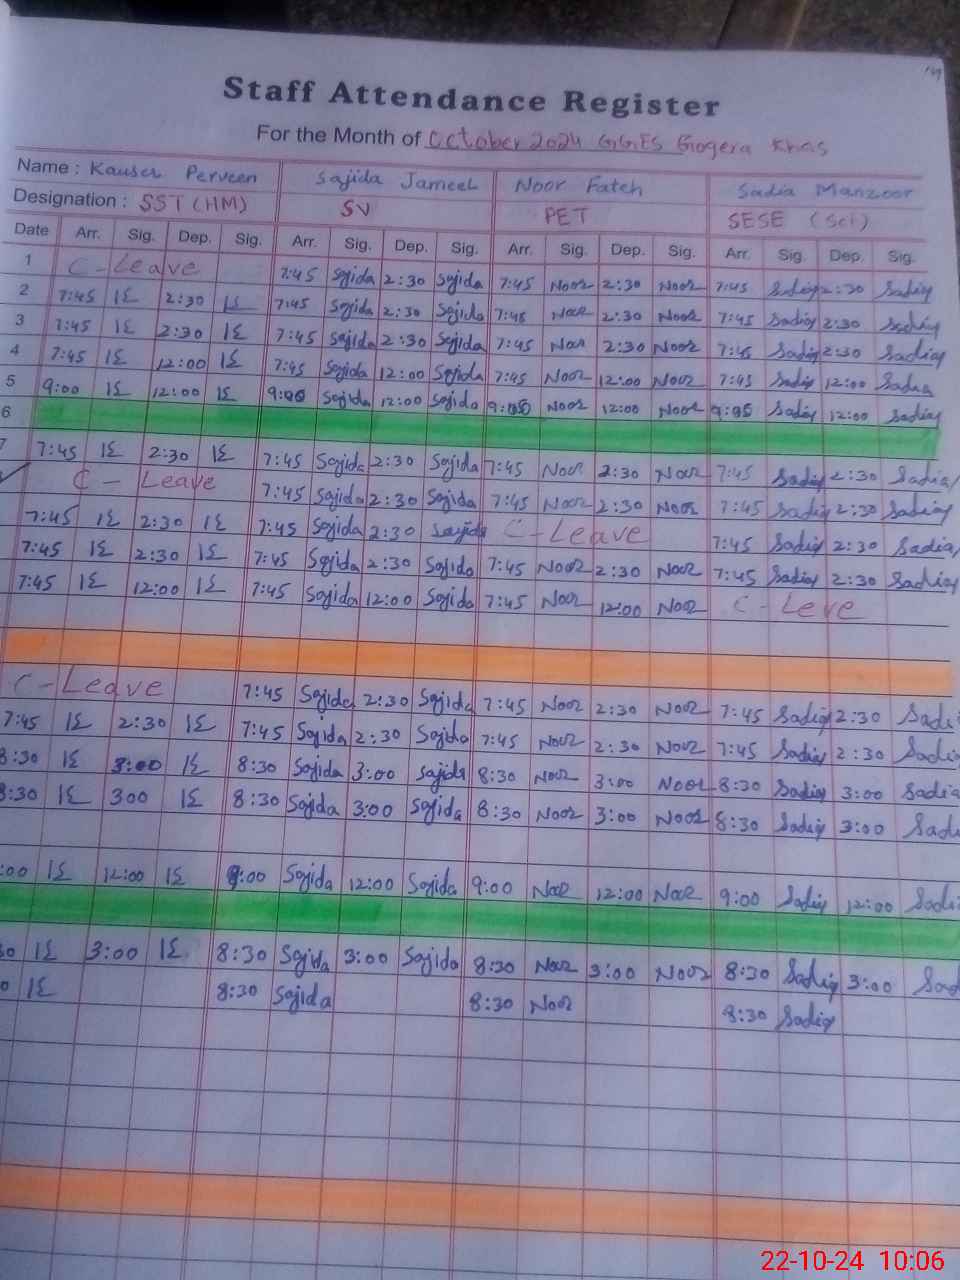 Staff Attendance Register
For the Month of October 2024 G.G.E.S Gogera Khas
Name : Kauser Perveen Sajida Jameel Noor Fateh Sadia Manzoor
Designation : SST (HM) SV PET SESE (Sci)
Date Arr. Sig. Dep. Sig. Arr. Sig. Dep. Sig. Arr. Sig. Dep. Sig. Arr. Sig. Dep. Sig.
1 C-Leave 7:45 Sajida 2:30 Sajida 7:45 Noor 2:30 Noor 7:45 Sadia 2:30 Sadia
2 7:45 2:30 7:45 Sajida 2:30 Sajida 7:45 Noor 2:30 Noor 7:45 Sadia 2:30 Sadia
3 7:45 2:30 7:45 Sajida 2:30 Sajida 7:45 Noor 2:30 Noor 7:45 Sadia 2:30 Sadia
4 7:45 12:00 7:45 Sajida 12:00 Sajida 7:45 Noor 12:00 Noor 7:45 Sadia 12:00 Sadia
5 9:00 12:00 Sajida 12:00 Sajida Noor 12:00 Noor Sadia 12:00 Sadia
6
7 7:45 2:30 7:45 Sajida 2:30 Sajida 7:45 Noor 2:30 Noor 7:45 Sadia 2:30 Sadia
C - Leave 7:45 Sajida 2:30 Sajida 7:45 Noor 2:30 Noor 7:45 Sadia 2:30 Sadia
7:45 2:30 7:45 Sajida 2:30 Sajida C-Leave 7:45 Sadia 2:30 Sadia
7:45 2:30 7:45 Sajida 2:30 Sajida 7:45 Noor 2:30 Noor 7:45 Sadia 2:30 Sadia
7:45 12:00 7:45 Sajida 12:00 Sajida 7:45 Noor 12:00 Noor C-Leve
C-Leave 7:45 Sajida 2:30 Sajida 7:45 Noor 2:30 Noor 7:45 Sadia 2:30 Sadi
7:45 2:30 7:45 Sajida 2:30 Sajida 7:45 Noor 2:30 Noor 7:45 Sadia 2:30 Sadi
8:30 3:00 8:30 Sajida 3:00 Sajida 8:30 Noor 3:00 Noor 8:30 Sadia 3:00 Sadia
8:30 300 8:30 Sajida 3:00 Sajida 8:30 Noor 3:00 Noor 8:30 Sadia 3:00 Sadi
:00 12:00 9:00 Sajida 12:00 Sajida 9:00 Noor 12:00 Noor 9:00 Sadia 12:00 Sadi
30 3:00 8:30 Sajida 3:00 Sajida 8:30 Noor 3:00 Noor 8:30 Sadia 3:00 Sad
0 8:30 Sajida 8:30 Noor 8:30 Sadia
22-10-24 10:06